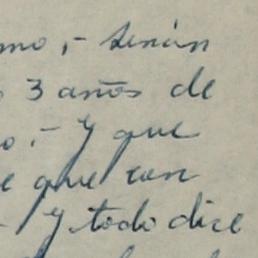 mo,- serán
3 años de
o.- y que
e que con
- y todo dice